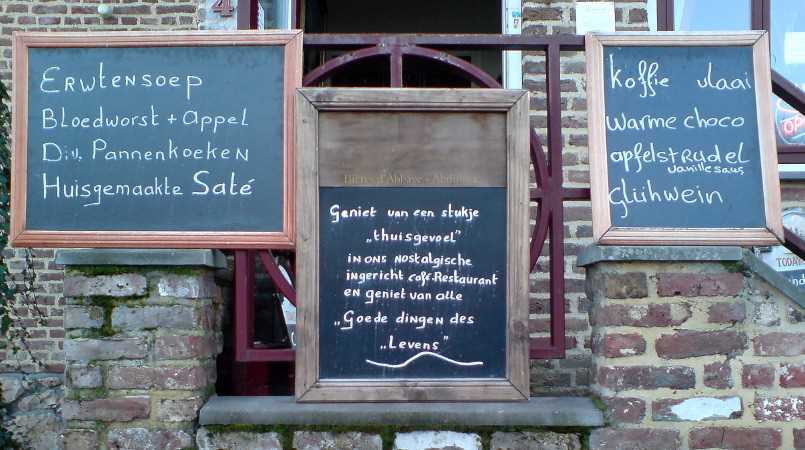 4
Erwtensoep
Bloedworst + Appel
Div. Pannenkoeken
Huisgemaakte Saté
Bières d'Abbaye - Abdijbier
Geniet van een stukje
„thuisgevoel”
in ons nostalgische
ingericht café-Restaurant
en geniet van alle
„Goede dingen des
„Levens”
koffie vlaai
warme choco
apfelstrudel
vanillesaus
glühwein
OP
TODAY